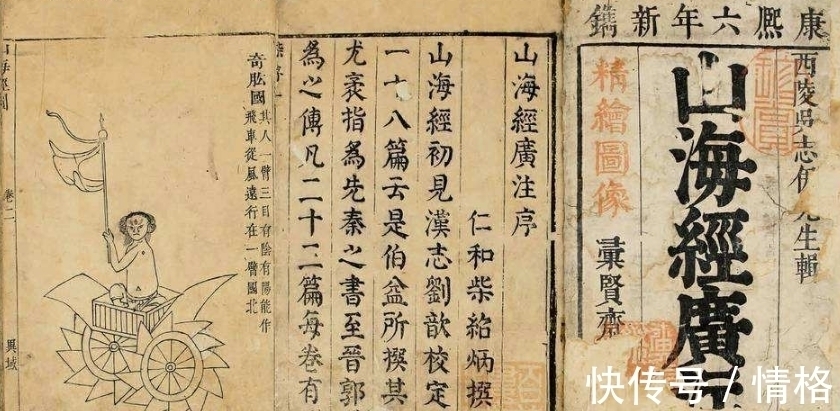 康熙六年新鐫
西陵吳志伊先生輯
山海經廣
精繪圖像
彙賢齋
山海經廣注序
仁和柴紹炳撰
山海經初見漢志劉歆校定
一十八篇云是伯益所撰其
尤袤指為先秦之書至晉郭
為之傳凡二十二篇每卷有
奇肱國
其人一臂三目有陰有陽能作
飛車從風遠行在一臂國北
卷二
異域
快传号 / 情格